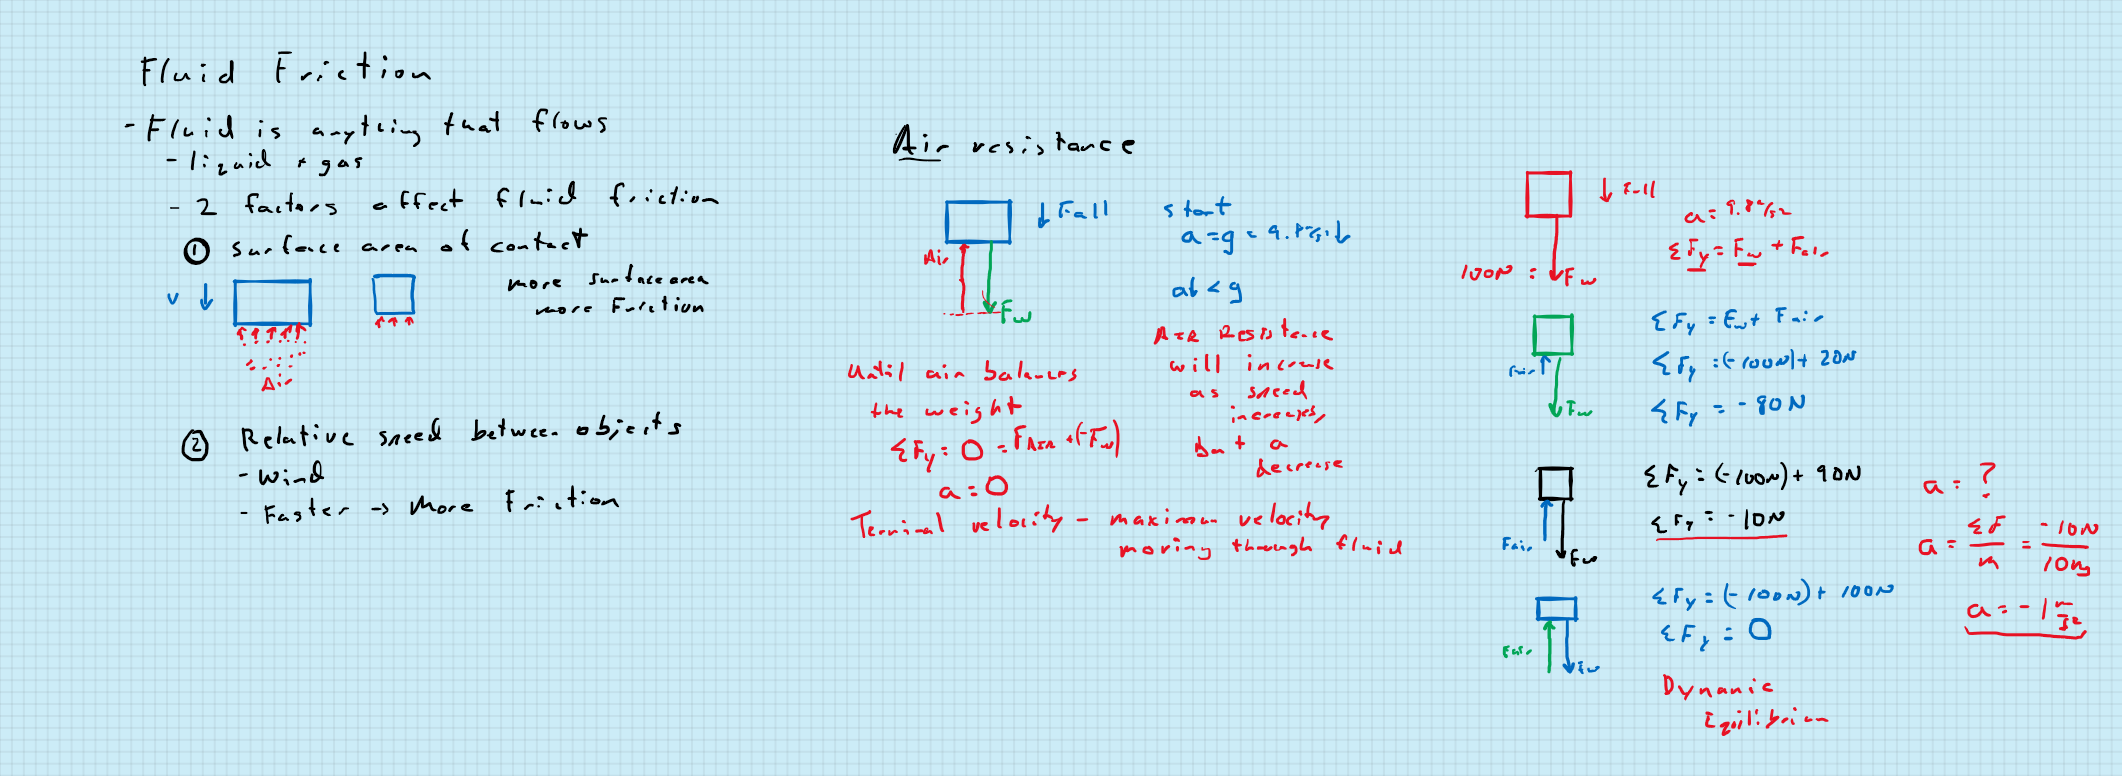 Fluid Friction
- Fluid is anything that flows
- liquid + gas
- 2 factors affect fluid friction
① surface area of contact
v ↓
more surface area
more Friction
Air
② Relative speed between objects
- Wind
- Faster → More Friction
Air resistance
↓ Fall
Air
Fw
start
a = g = 9.8 m/s² ↓
a↓ < g
Air Resistance
will increase
as speed
increases,
But a
decrease
Until air balances
the weight
ΣFy = 0 = FAIR + (-Fw)
a = 0
Terminal velocity - maximum velocity
moving through fluid
↓ Fall
100N = Fw
a = 9.8 m/s²
ΣFy = Fw + Fair
Fair
Fw
ΣFy = Fw + Fair
ΣFy = (-100N) + 20N
ΣFy = -80N
Fair
Fw
ΣFy = (-100N) + 90N
ΣFy = -10N
a = ?
a = ΣF/m = -10N/10kg
a = -1 m/s²
Fair
Fw
ΣFy = (-100N) + 100N
ΣFy = 0
Dynamic
Equilibrium